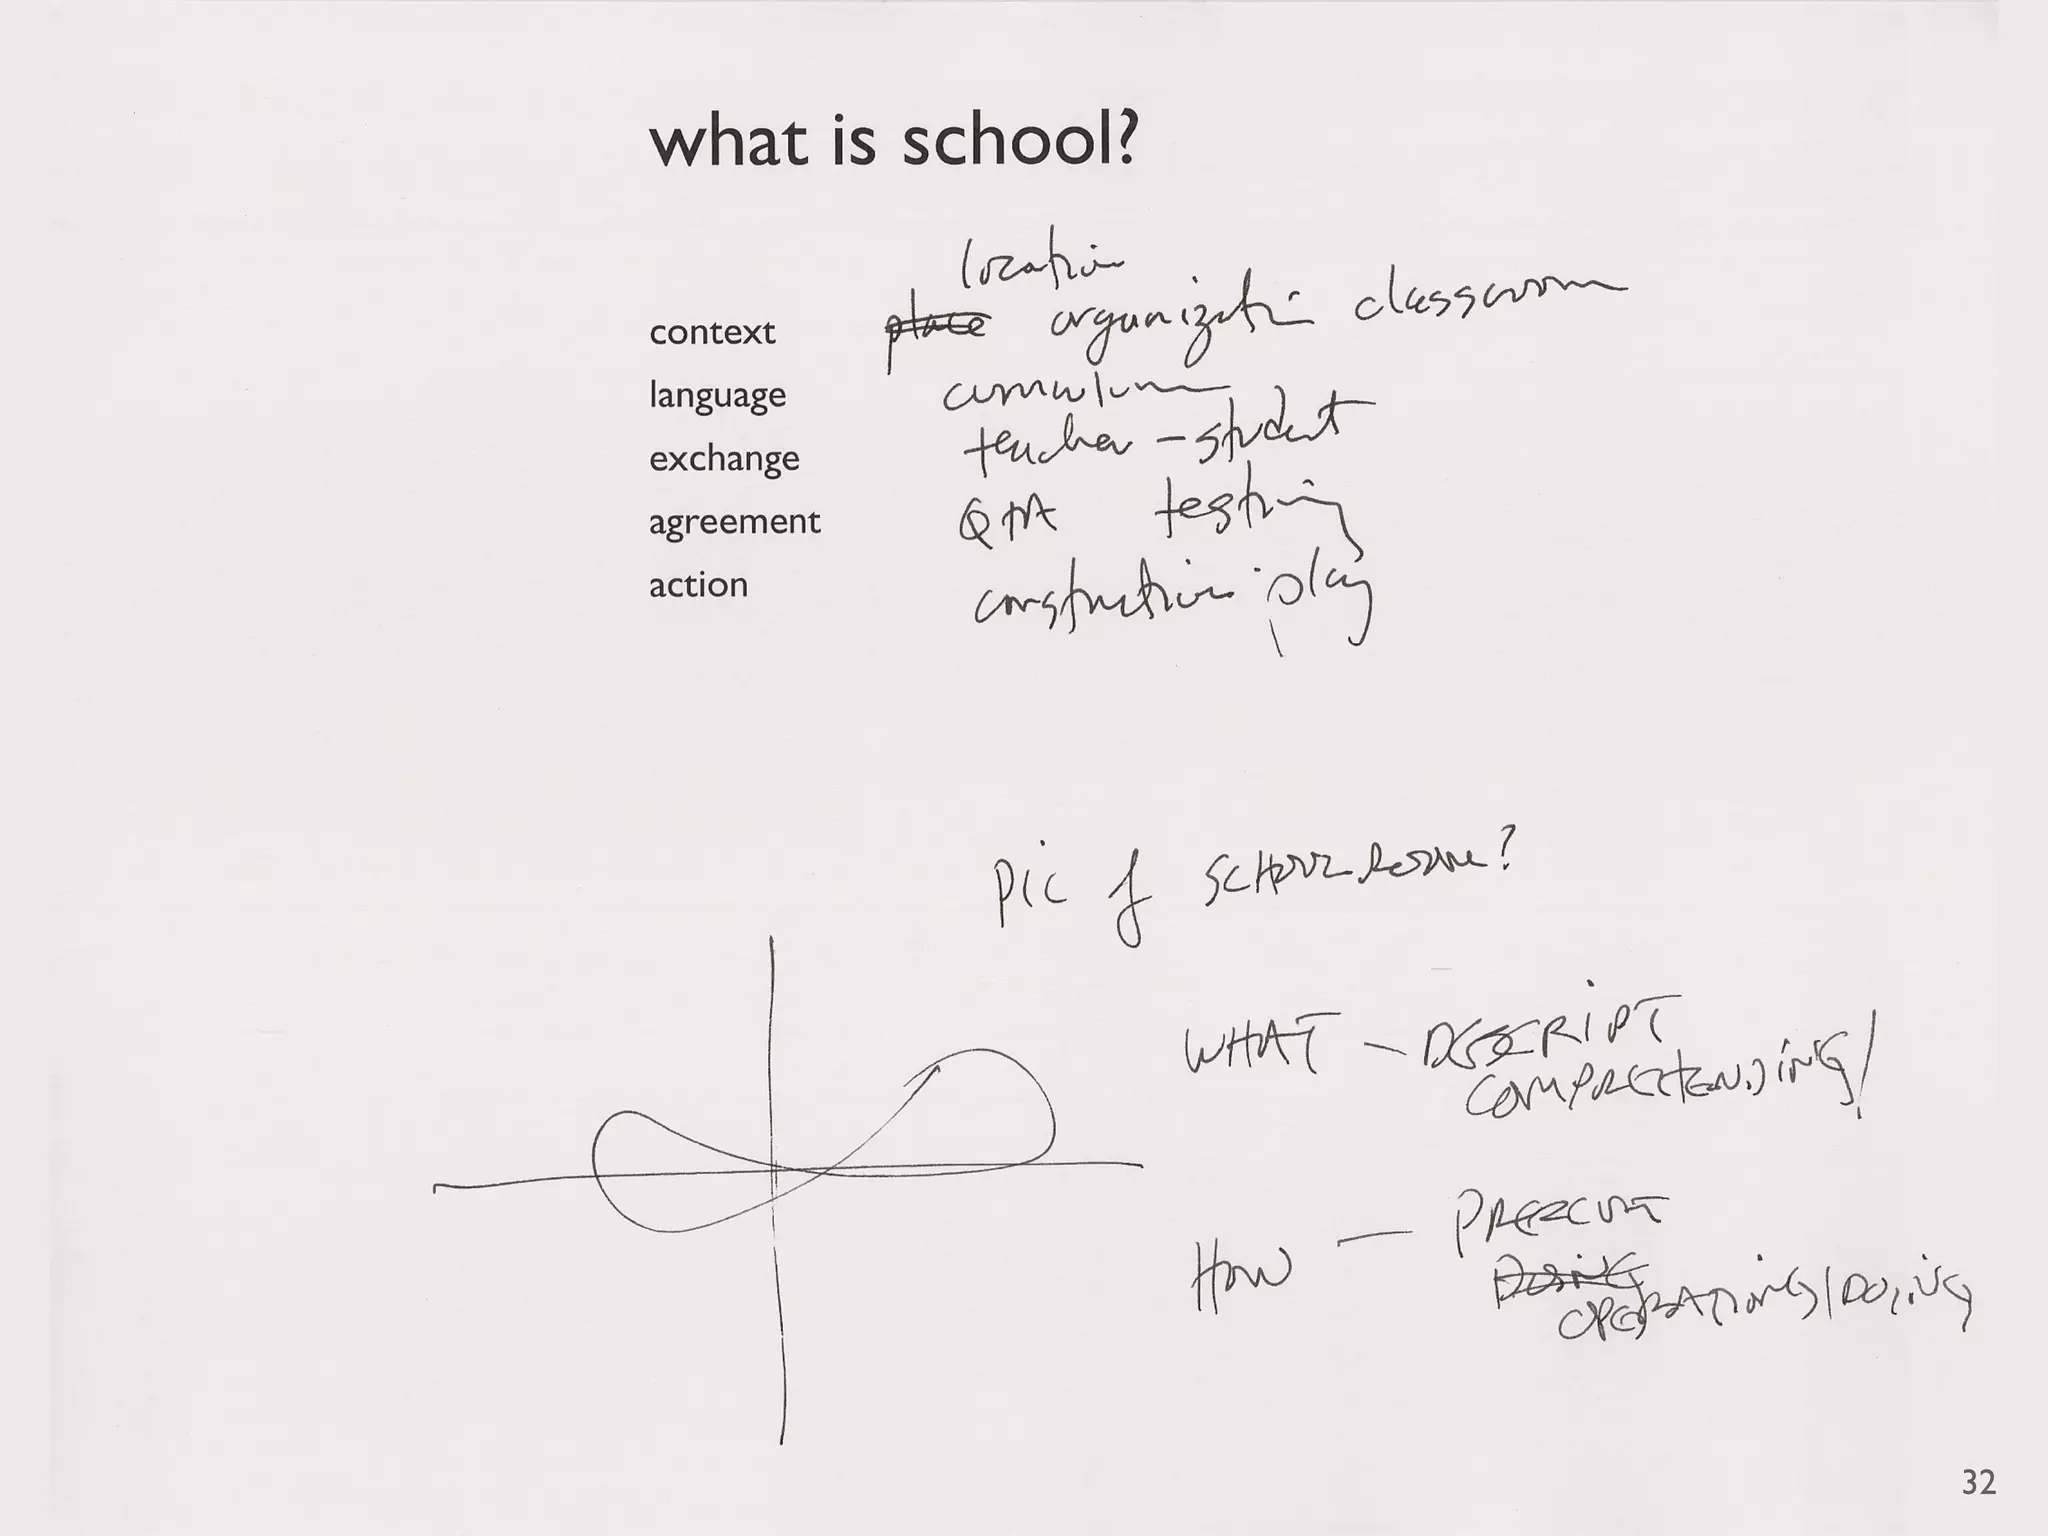 what is school?
location
context place organization classroom
language curriculum
exchange teacher - student
agreement Q+A testing
action construction play
pic of SCHOOLROOM?
WHAT - DESCRIPT
COMPREHENDING/
HOW - 
DOING
OPERATIONS/DOING
32